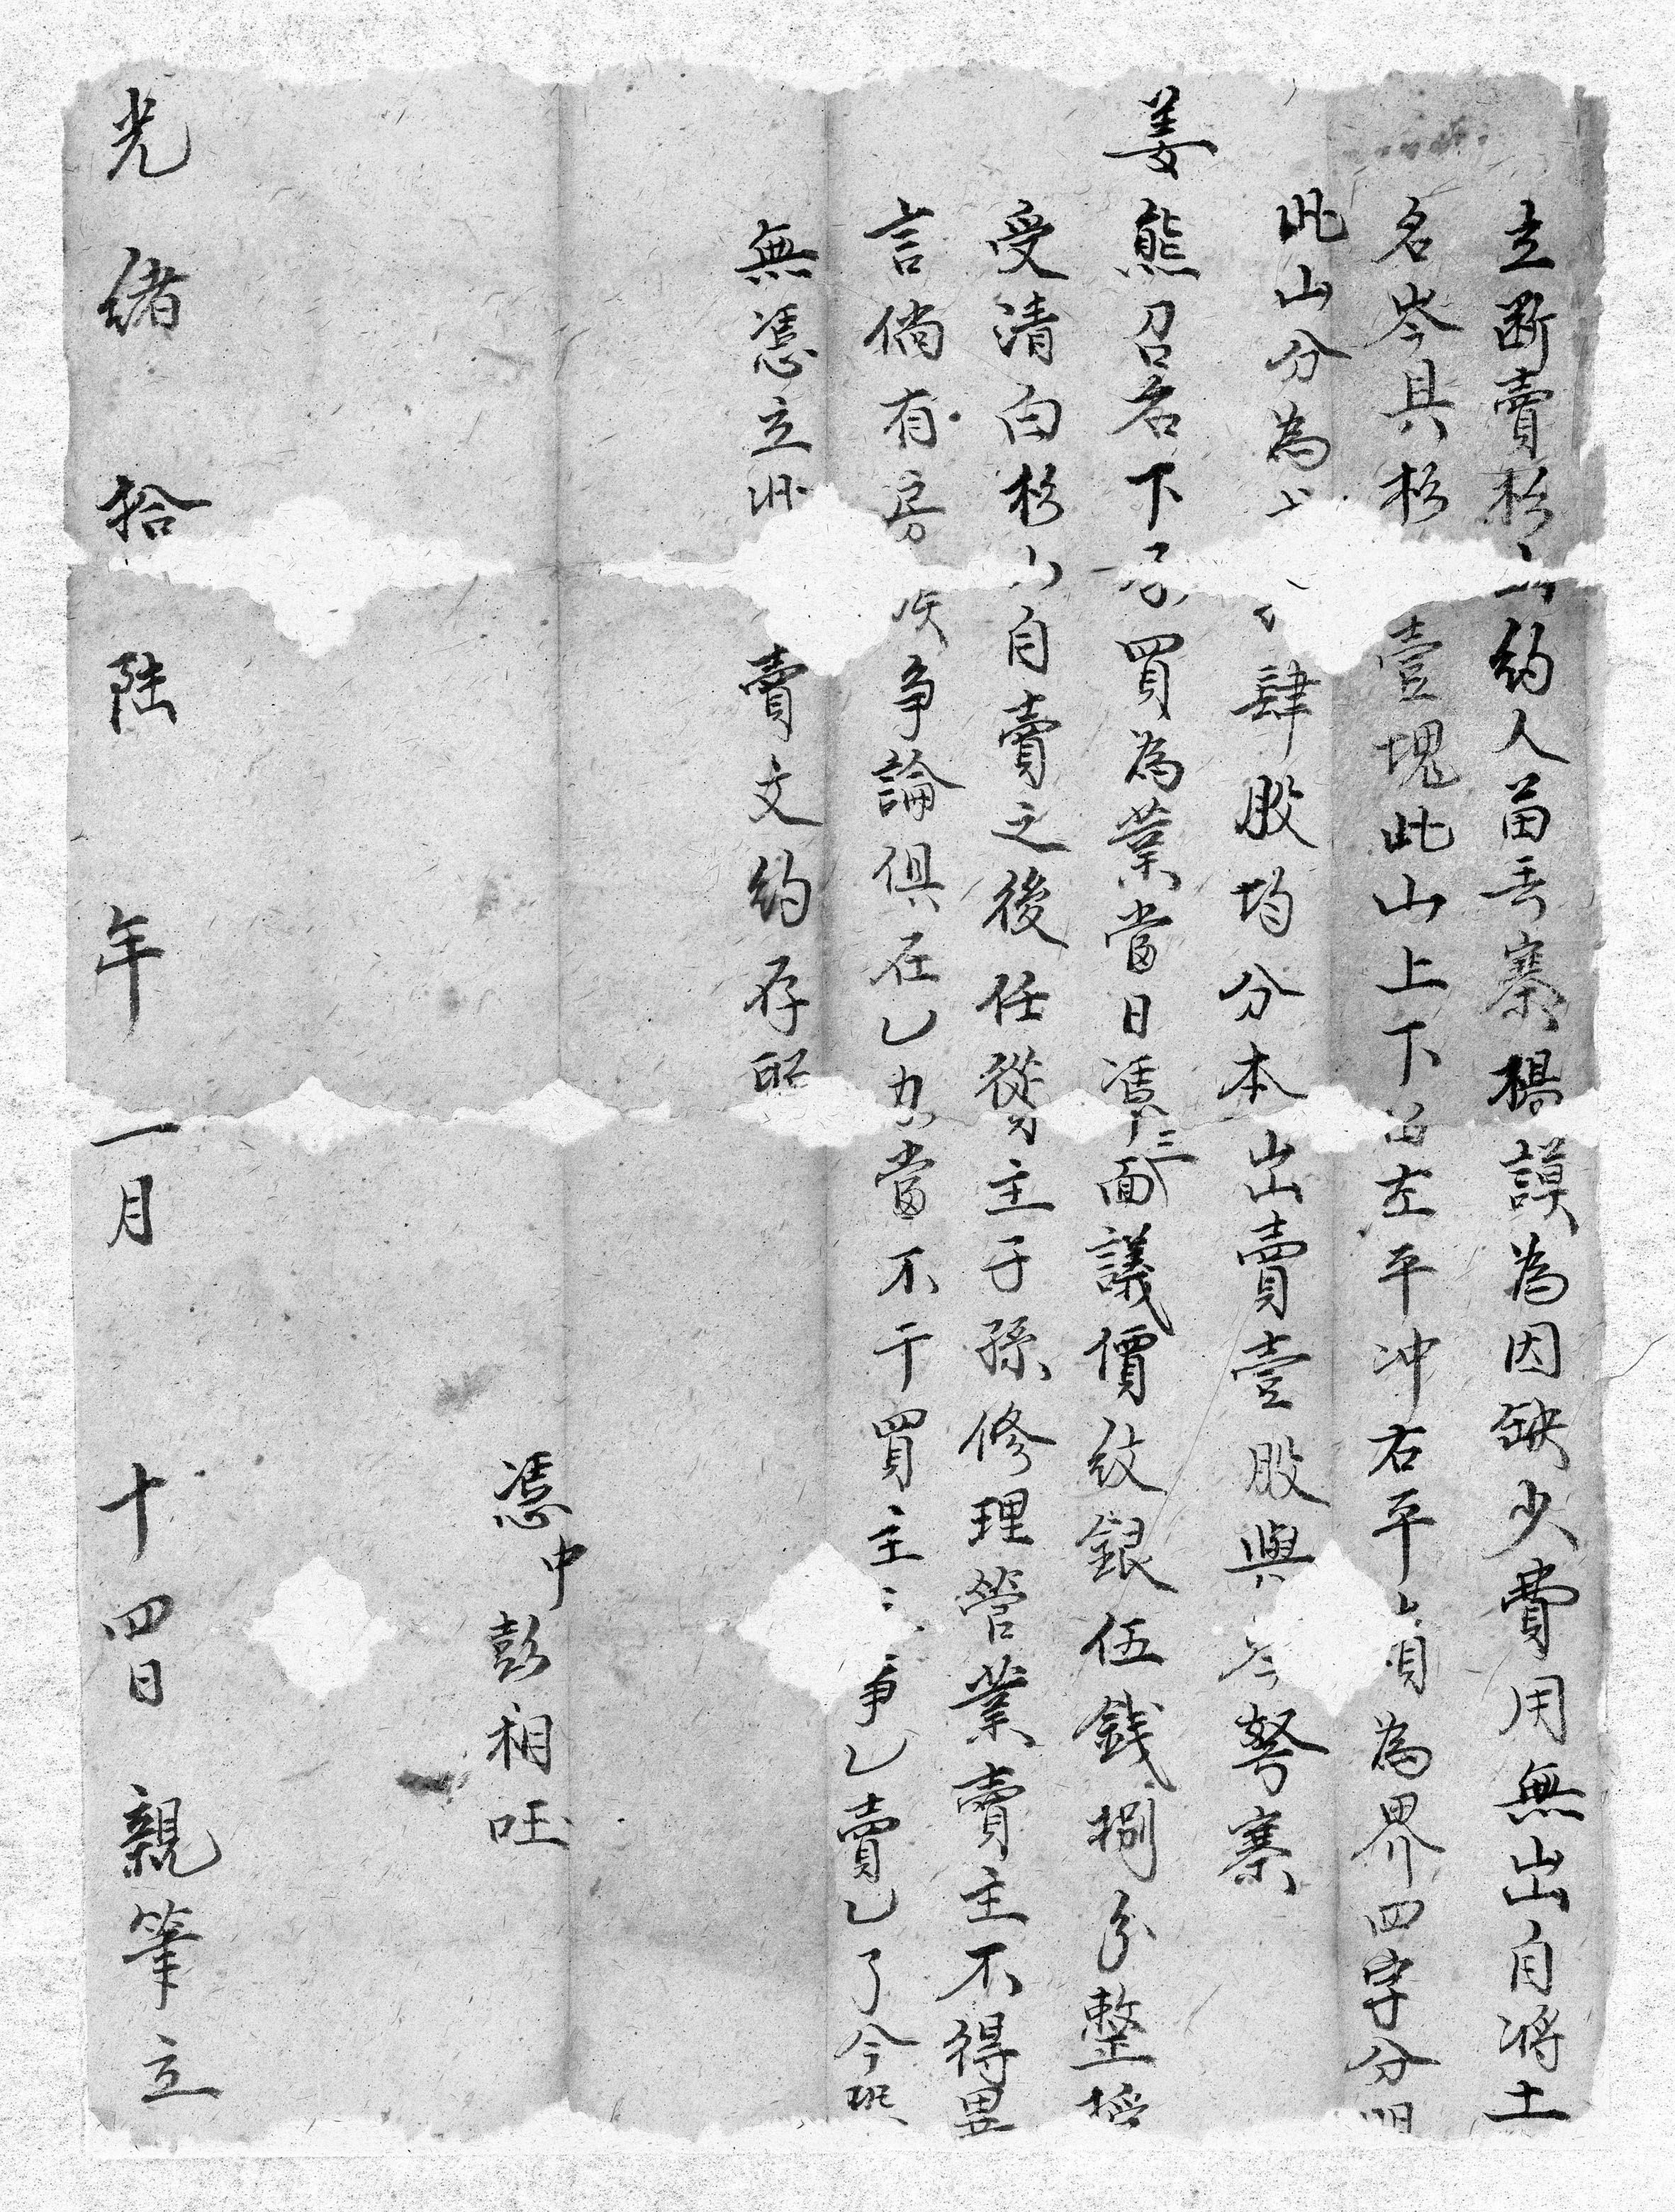 立断賣杉山約人苗丢寨楊謨為因缺少費用無出自将土
名岑具杉壹塊此山上下苗左平冲右平嶺為界四字分明
此山分為肆股均分本出賣壹股與岑弩寨
姜熊召名下承買為業當日凴中三面議價紋銀伍錢捌分整捂
受清白杉山自賣之後任從買主子孫修理管業賣主不得異
言倘有房族争論俱在賣主理當不干買主之争一賣一了今恐
無凴立此賣文約存照
凴中彭相吐
光緒拾陸年一月十四日親筆立